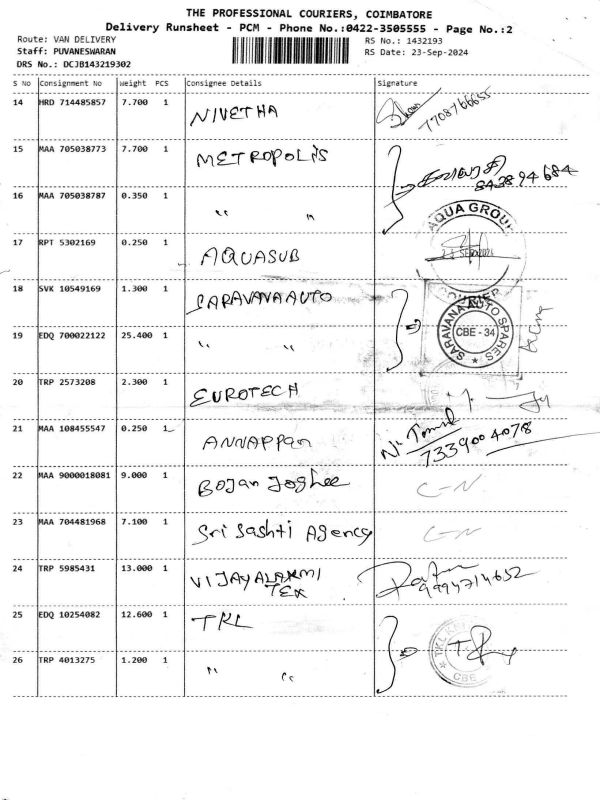 THE PROFESSIONAL COURIERS, COIMBATORE
Delivery Runsheet - PCM - Phone No.:0422-3505555 - Page No.:2
Route: VAN DELIVERY RS No.: 1432193
Staff: PUVANESWARAN RS Date: 23-Sep-2024
DRS No.: DCJB143219302
S No Consignment No Weight PCS Consignee Details Signature
14 HRD 714485857 7.700 1 NIVETHA 7708766655
15 MAA 705038773 7.700 1 METROPOLIS
16 MAA 705038787 0.350 1 " "
AQUA GROUP
17 RPT 5302169 0.250 1 AQUASUB
COURIER
18 SVK 10549169 1.300 1 SARAVANA AUTO
19 EDQ 700022122 25.400 1 " " SARAVANA AUTO SPARES CBE - 34
20 TRP 2573208 2.300 1 EUROTECH
21 MAA 108455547 0.250 1 ANNAPPan 7339004078
22 MAA 9000018081 9.000 1 Bojan Joghee C-N
23 MAA 704481968 7.100 1 Sri Sashti Agency C-N
24 TRP 5985431 13.000 1 VIJAYALAXMI TEX 9994714652
25 EDQ 10254082 12.600 1 TKL
26 TRP 4013275 1.200 1 " " TKL CBE